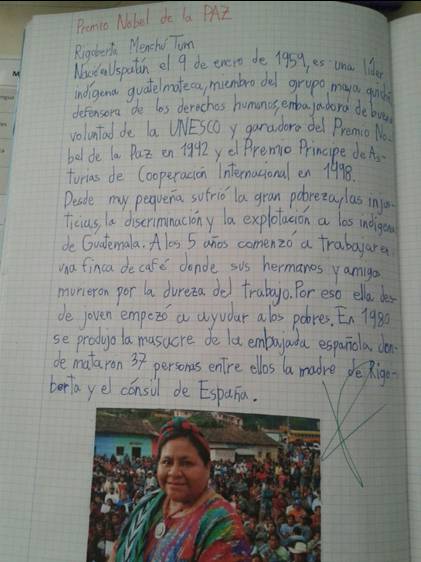 Premio Nobel de la PAZ
Rigoberta Menchú Tum
Nació en Uspatún el 9 de enero de 1959, es una líder
indígena guatelmateca, miembro del grupo maya quiché
defensora de los derechos humanos, embajadora de buena
voluntad de la UNESCO y ganadora del Premio No-
bel de la Paz en 1992 y el Premio Principe de As-
turias de Cooperación Internacional en 1998.
Desde muy pequeña sufrió la gran pobreza, las injus-
ticias, la discriminación y la explotación a los indígena
de Guatemala. A los 5 años comenzó a trabajar en
una finca de café donde sus hermanos y amigo
murieron por la dureza del trabajo. Por eso ella des-
de joven empezó a ayudar a los pobres. En 1980
se produjo la masacre de la embajada española, don-
de mataron 37 personas entre ellos la madre de Rigo-
berta y el cónsul de España.